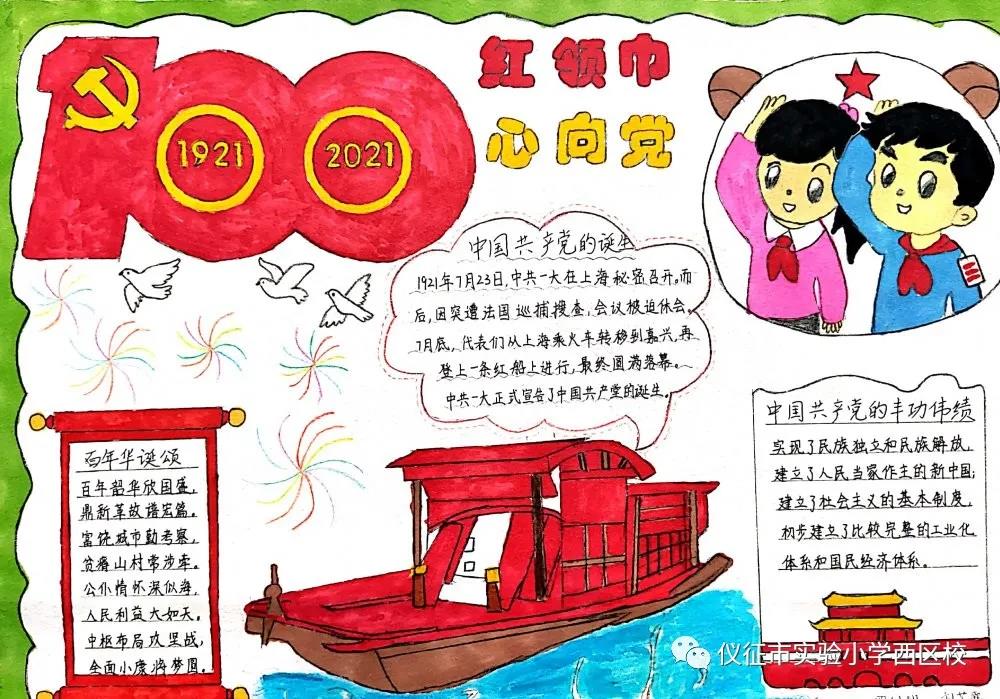 1921
2021
红领巾
心向党
中国共产党的诞生
1921年7月23日,中共一大在上海秘密召开。而
后,因突遭法国巡捕搜查,会议被迫休会。
7月底,代表们从上海乘火车转移到嘉兴,再
登上一条红船上进行,最终圆满落幕。
中共一大正式宣告了中国共产党的诞生。
百年华诞颂
百年韶华欣国盛,
鼎新革故谱宏篇。
富饶城市勤考察,
贫瘠山村常涉牵。
公仆情怀深似海,
人民利益大如天。
中枢布局攻坚战,
全面小康将梦圆。
中国共产党的丰功伟绩
实现了民族独立和民族解放,
建立了人民当家作主的新中国;
建立了社会主义的基本制度,
初步建立了比较完整的工业化
体系和国民经济体系。
仪征市实验小学西区校